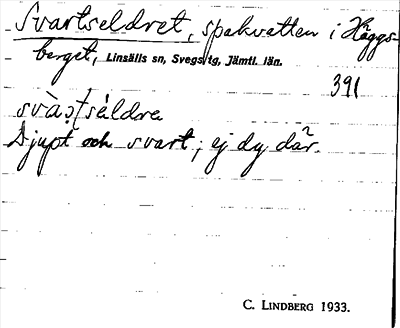 Svartseldret, spakvatten i Häggs-
berget, Linsälls sn, Svegs tg, Jämtl. län.
391
Djupt och svart; ej dy där.
C. LINDBERG 1933.